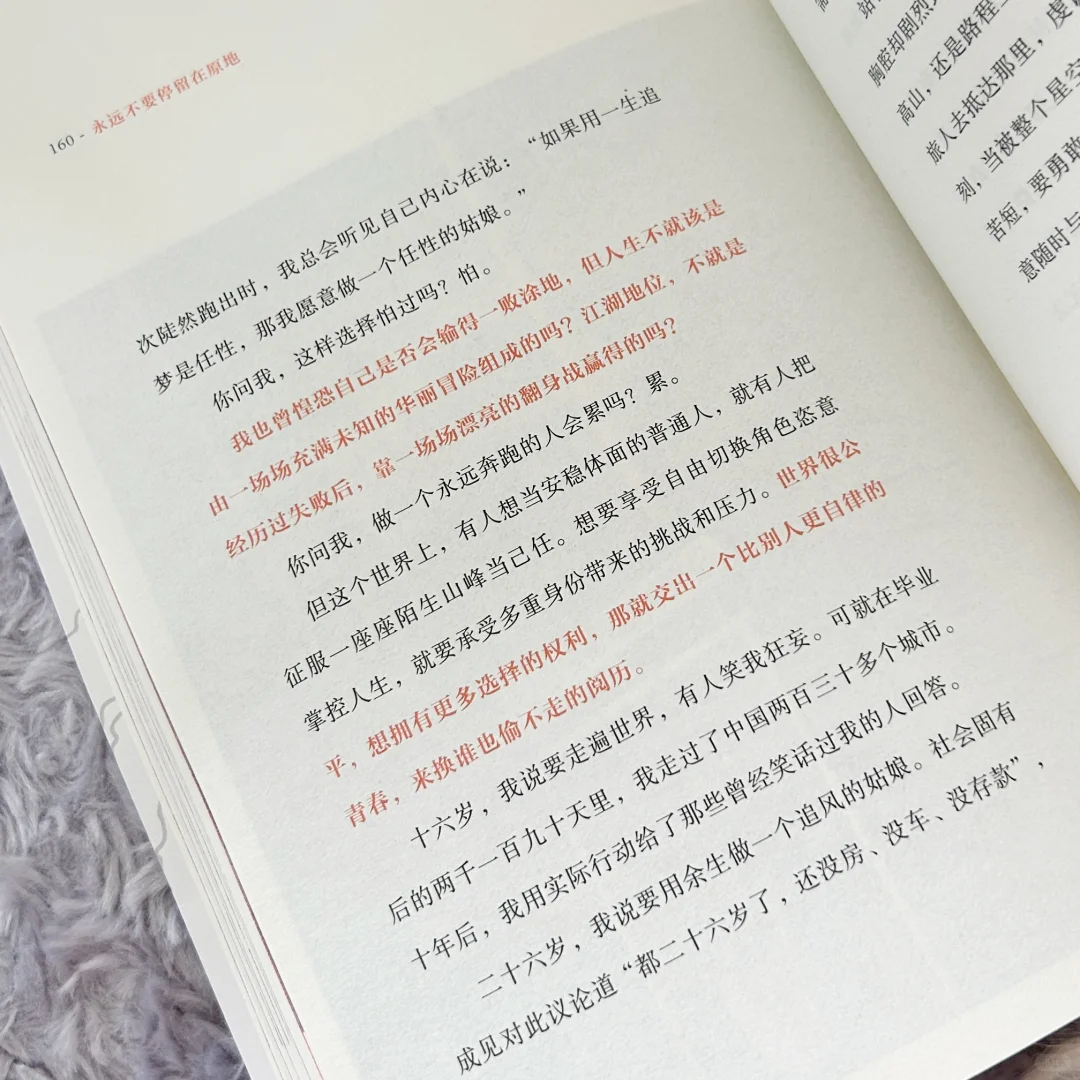 160 - 永远不要停留在原地
次陡然跑出时，我总会听见自己内心在说：“如果用一生追
梦是任性，那我愿意做一个任性的姑娘。”
你问我，这样选择怕过吗？怕。
我也曾惶恐自己是否会输得一败涂地，但人生不就该是
由一场场充满未知的华丽冒险组成的吗？江湖地位，不就是
经历过失败后，靠一场场漂亮的翻身战赢得的吗？
你问我，做一个永远奔跑的人会累吗？累。
但这个世界上，有人想当安稳体面的普通人，就有人把
征服一座座陌生山峰当己任。想要享受自由切换角色恣意
掌控人生，就要承受多重身份带来的挑战和压力。世界很公
平，想拥有更多选择的权利，那就交出一个比别人更自律的
青春，来换谁也偷不走的阅历。
十六岁，我说要走遍世界，有人笑我狂妄。可就在毕业
后的两千一百九十天里，我走过了中国两百三十多个城市。
十年后，我用实际行动给了那些曾经笑话过我的人回答。
二十六岁，我说要用余生做一个追风的姑娘。社会固有
成见对此议论道“都二十六岁了，还没房、没车、没存款”，
站
胸腔却剧烈
高山，还是路程
旅人去抵达那里，虔
刻，当被整个星空
苦短，要勇敢
意随时与